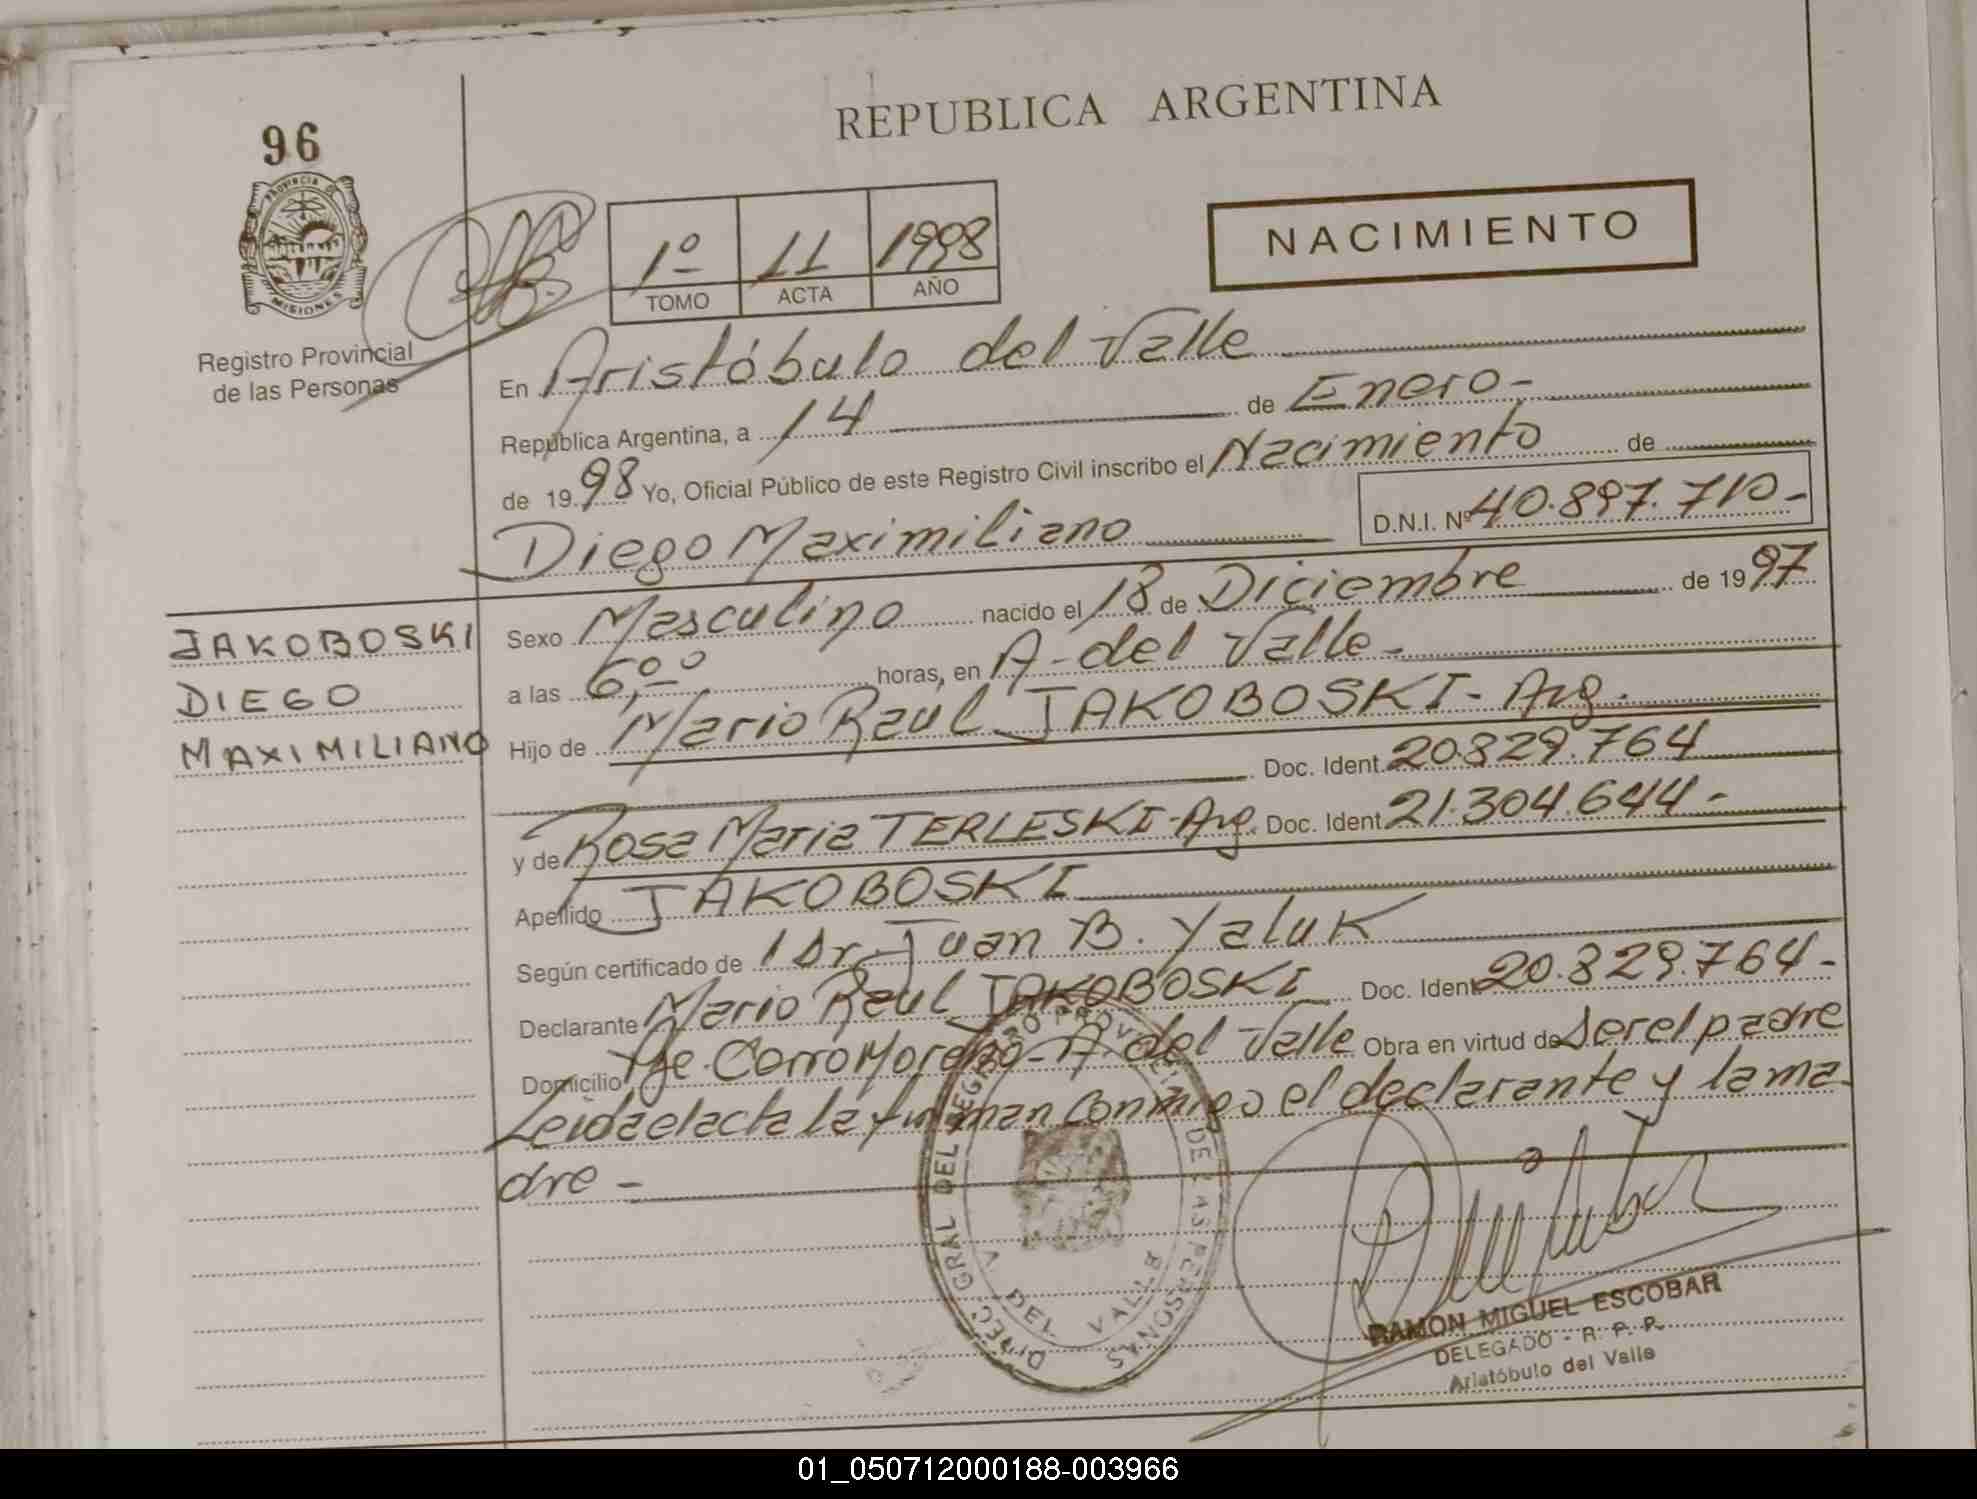 96
REPUBLICA ARGENTINA
PROVINCIA DE
MISIONES
Registro Provincial
de las Personas
1º 11 1998
TOMO ACTA AÑO
NACIMIENTO
En Aristóbulo del Valle
República Argentina, a 14 de Enero-
de 1998 Yo, Oficial Público de este Registro Civil inscribo el Nacimiento de
Diego Maximiliano D.N.I. Nº 40.897.710-
JAKOBOSKI
DIEGO
MAXIMILIANO
Sexo Masculino nacido el 18 de Diciembre de 1997
a las 6,00 horas, en A- del Valle-
Hijo de Mario Raúl JAKOBOSKI- Arg.
Doc. Ident. 20.829.764
y de Rosa Maria TERLESKI-Arg. Doc. Ident. 21.304.644-
Apellido JAKOBOSKI
Según certificado de 1 Dr. Juan B. Yaluk
Declarante Mario Raul JAKOBOSKI Doc. Ident. 20.829.764-
Domicilio Pje. Cerro Moreno- A. del Valle Obra en virtud de Ser el padre
Leida el acta la firman conmigo el declarante y la ma
dre-
DIREC GRAL DEL REGISTRO PROVINCIAL DE LAS PERSONAS
A DEL VALLE
RAMON MIGUEL ESCOBAR
DELEGADO - R. P. P.
Aristóbulo del Valle
01_050712000188-003966